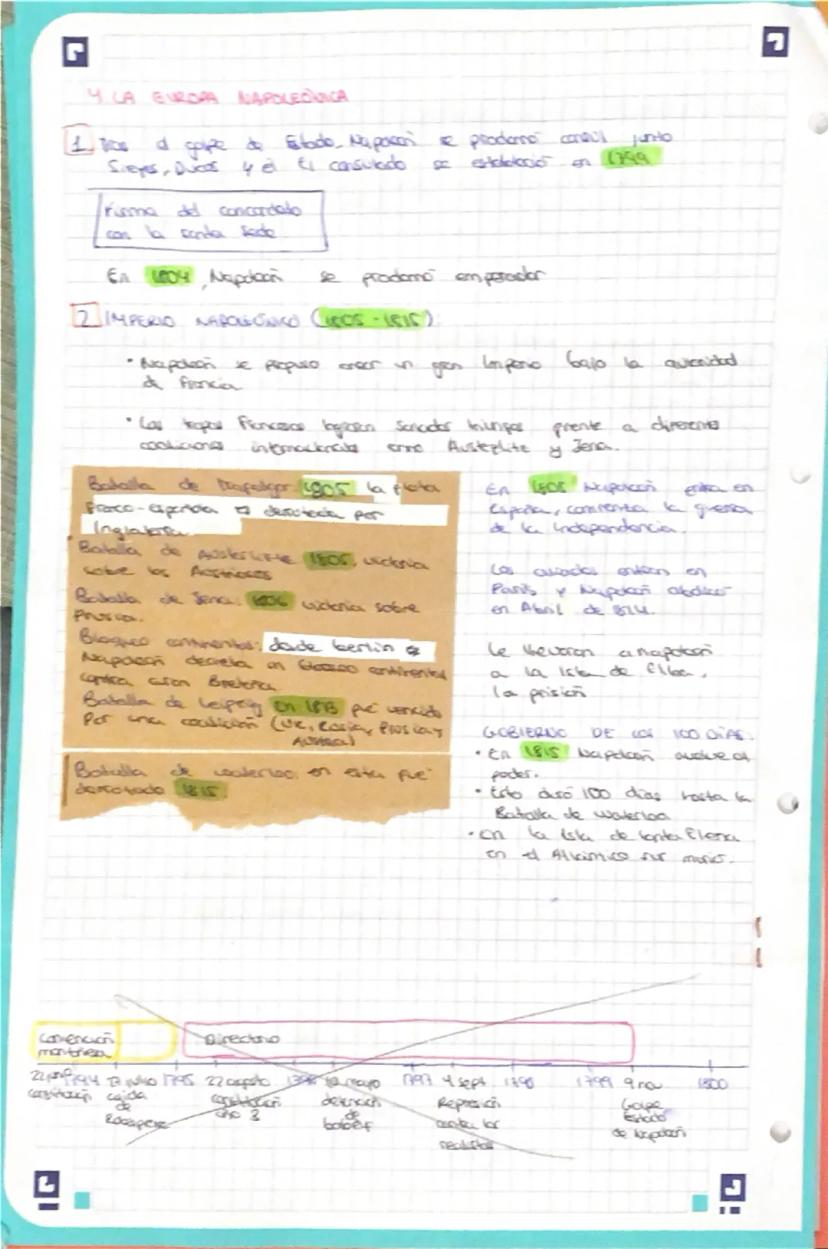 4 LA EUROPA NAPOLEÓNICA
1 Tras el golpe de Estado, Napoleón se proclamó cónsul junto
Sieyes, Ducos y él El consulado se estableció en 1799
Firma del concordato
con la Santa Sede
En 1804, Napoleón se proclamó emperador
2 IMPERIO NAPOLEÓNICO (1805-1815):
• Napoleón se propuso crear un gran Imperio bajo la autoridad
de Francia
• Las tropas Francesas logran sonados triunfos frente a diferentes
coaliciones internacionales como Austerlitz y Jena.
Batalla de Trafalgar: 1805 la flota
franco-española es derrotada por
Inglaterra.
Batalla de 1805, victoria
sobre los Austriacos
Batalla de Jena: 1806 victoria sobre
Prusia.
Bloqueo continental: desde Berlín
Napoleón decreta un bloqueo continental
contra Gran Bretaña
Batalla de Leipzig en 1813 fue vencido
Por una coalición (UK, Rusia, Prusia y
Austria)
Batalla de Waterloo: en esta fue
derrotado 1815
En Napoleón entra en
España, comienza la guerra
de la independencia.
Los aliados entran en
París y Napoleón abdica
en Abril de 814.
Le llevaron a Napoleón
a la Isla de Elba,
la prisión
GOBIERNO DE LOS 100 DÍAS:
• En 1815 Napoleón vuelve al
poder.
• Esto duró 100 días hasta la
Batalla de Waterloo
• En la Isla de Santa Elena
en el Atlántico sur murió.
Convención Directorio
montañesa
1794 julio 1795 22 agosto mayo 1797 4 sept 1798 1799 9 nov 1800
constitución caída constitución detención Represión Golpe
de año 3 de contra los Estado
Robespierre babeuf realistas de Napoleón